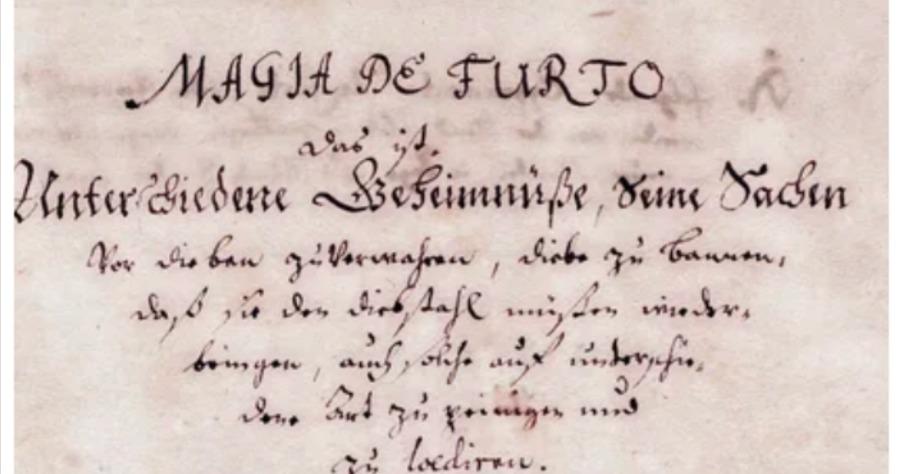 MAGIA DE FURTO
Das ist.
Unterschiedene Geheimnüße, Seine Sachen
Vor dieben zuVerwahren, diebe zu bannen,
daß sie den diebstahl müßen wieder,
bringen, auch solche auf unterschie,
dene Art zu peinigen und
zu loediren.